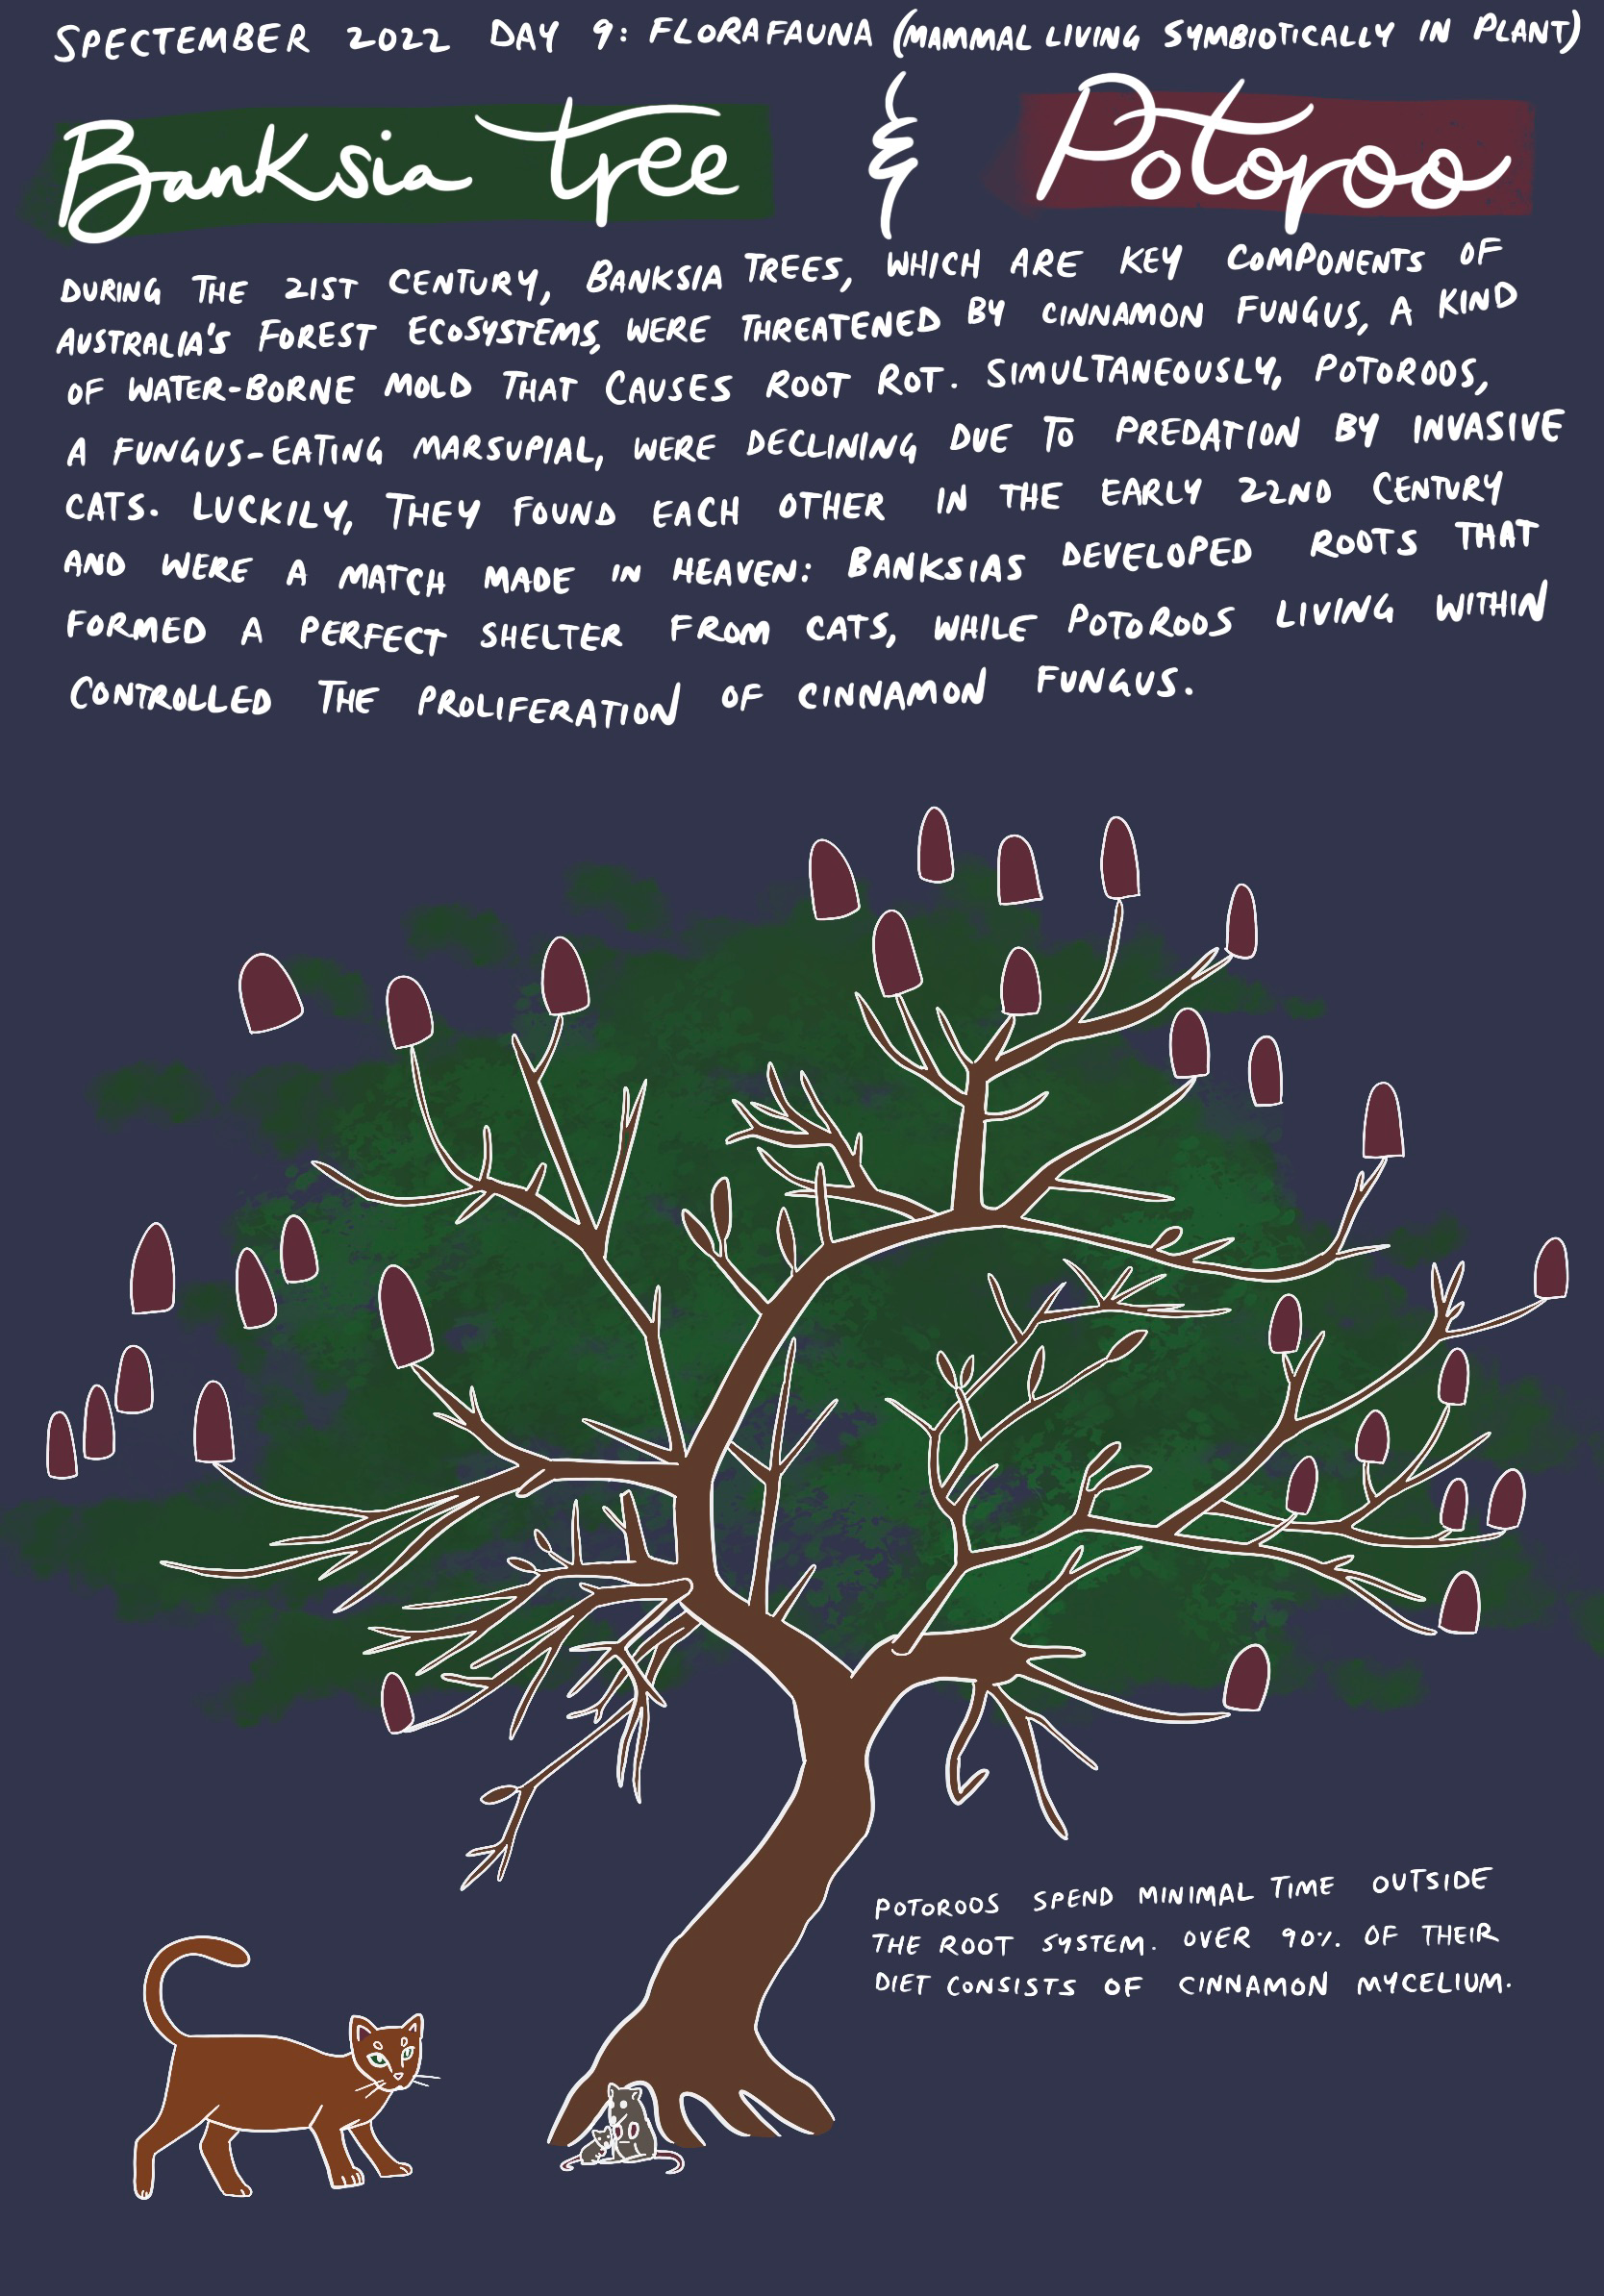 SPECTEMBER 2022 DAY 9: FLORAFAUNA (MAMMAL LIVING SYMBIOTICALLY IN PLANT)
Banksia Tree & Potoroo
DURING THE 21ST CENTURY, BANKSIA TREES, WHICH ARE KEY COMPONENTS OF
AUSTRALIA'S FOREST ECOSYSTEMS, WERE THREATENED BY CINNAMON FUNGUS, A KIND
OF WATER-BORNE MOLD THAT CAUSES ROOT ROT. SIMULTANEOUSLY, POTOROOS,
A FUNGUS-EATING MARSUPIAL, WERE DECLINING DUE TO PREDATION BY INVASIVE
CATS. LUCKILY, THEY FOUND EACH OTHER IN THE EARLY 22ND CENTURY
AND WERE A MATCH MADE IN HEAVEN: BANKSIAS DEVELOPED ROOTS THAT
FORMED A PERFECT SHELTER FROM CATS, WHILE POTOROOS LIVING WITHIN
CONTROLLED THE PROLIFERATION OF CINNAMON FUNGUS.
POTOROOS SPEND MINIMAL TIME OUTSIDE
THE ROOT SYSTEM. OVER 90% OF THEIR
DIET CONSISTS OF CINNAMON MYCELIUM.